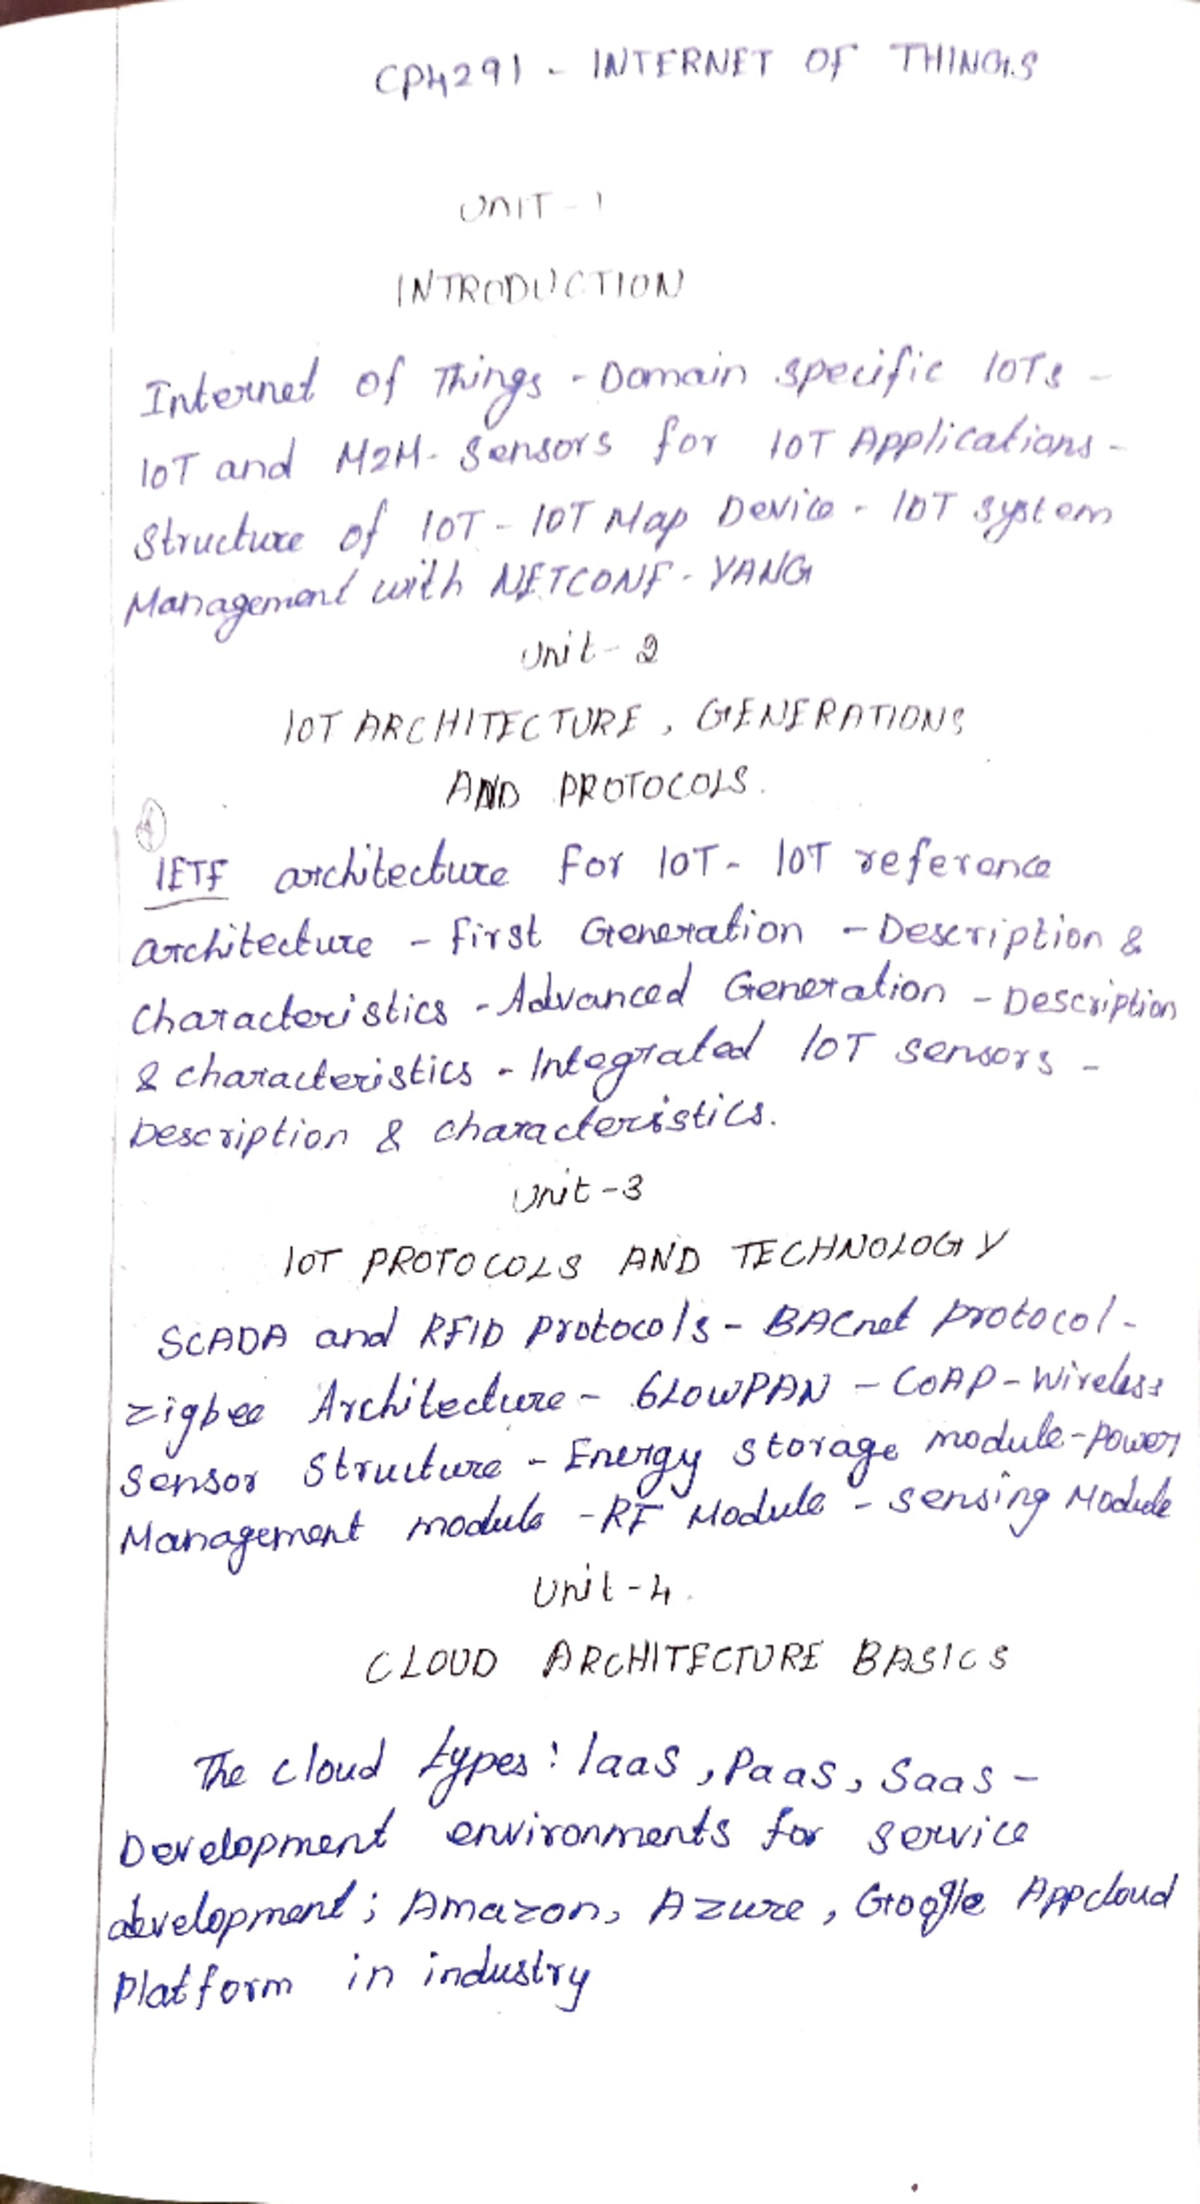 CP4291 - INTERNET OF THINGS
UNIT - 1
INTRODUCTION
Internet of Things - Domain specific IoTs -
IoT and M2M - Sensors for IoT Applications -
Structure of IoT - IoT Map Device - IoT system
Management with NETCONF - YANG
Unit - 2
IOT ARCHITECTURE, GENERATIONS
AND PROTOCOLS.
IETF architecture for IoT - IoT reference
architecture - First Generation - Description &
characteristics - Advanced Generation - Description
& characteristics - Integrated IoT sensors -
Description & characteristics.
Unit - 3
IOT PROTOCOLS AND TECHNOLOGY
SCADA and RFID protocols - BACnet protocol -
Zigbee Architecture - 6LowPAN - CoAP - Wireless
Sensor Structure - Energy storage module - Power
Management module - RF Module - sensing Module
Unit - 4.
CLOUD ARCHITECTURE BASICS
The cloud types : IaaS, PaaS, SaaS -
Development environments for service
development ; Amazon, Azure, Google Appcloud
Platform in industry